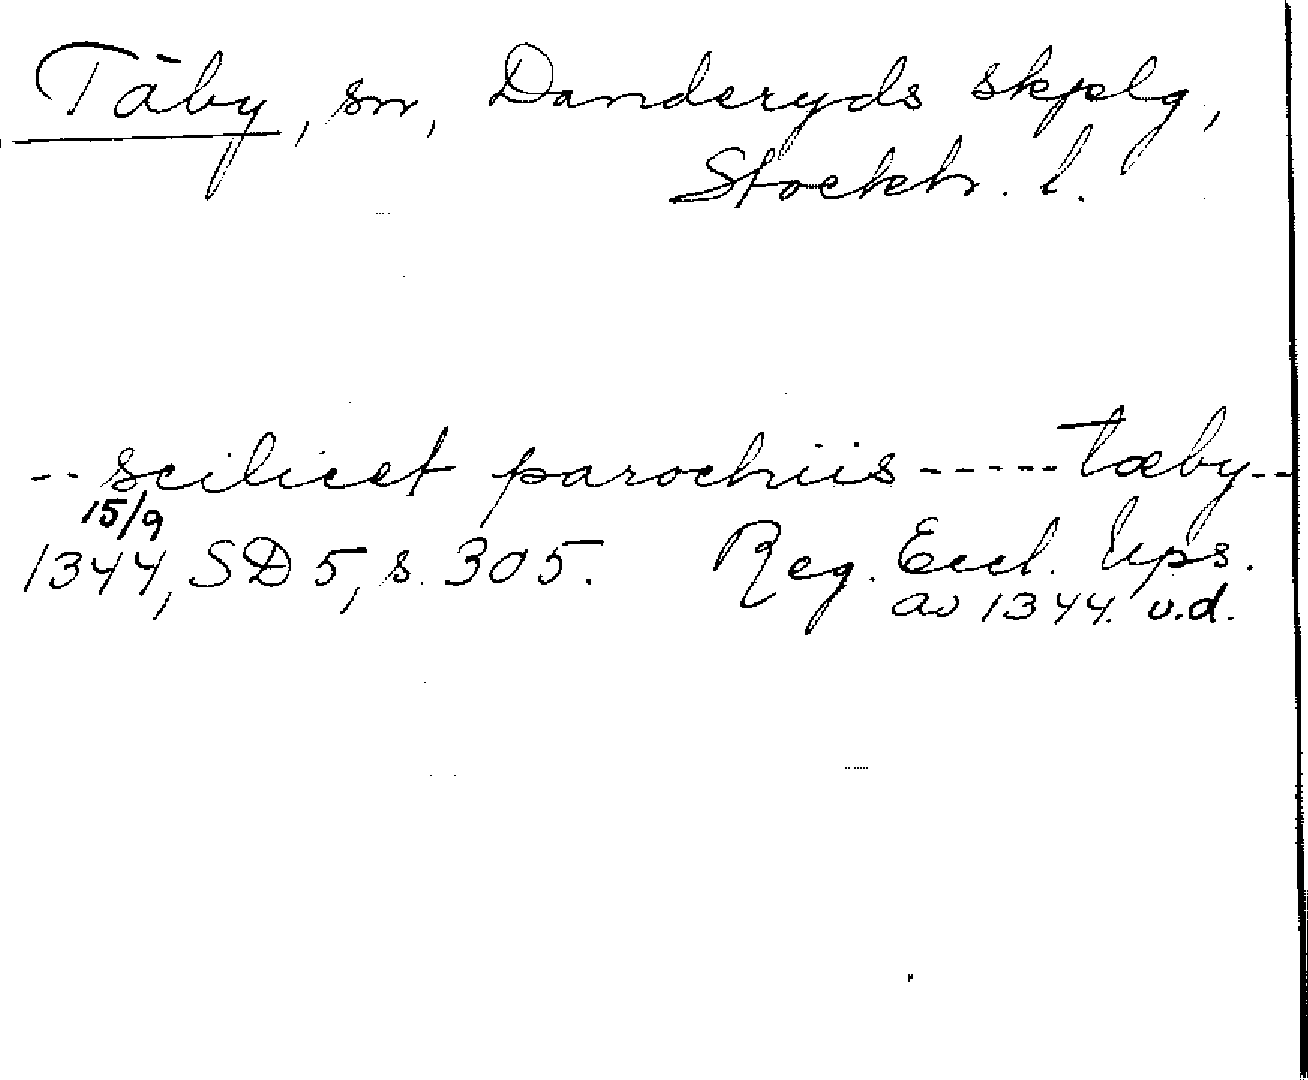 Täby, sn, Danderyds skplg,
Stockh. l.
-- scilicet parochiis ----- Tæby --
15/9
1344, SD 5, s. 305. Reg. Eccl. Ups.
av 1344. v.d.